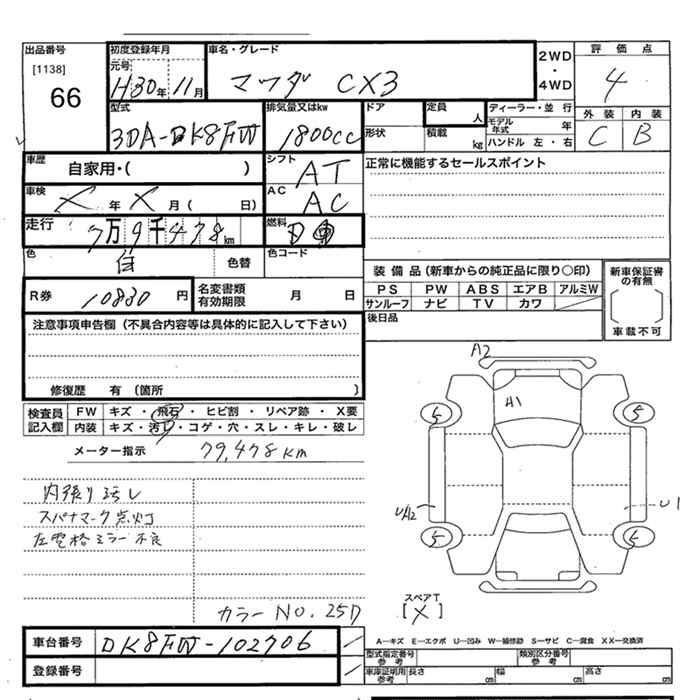 出品番号 初度登録年月 車名・グレード 2WD・4WD 評価点
[1138] 元号 H30年11月 マツダ CX3 4
66
型式 排気量又はkw ドア 定員 人 ディーラー・並行 外装 内装
3DA-DK8FW 1800cc 形状 積載 kg モデル年式 年 C B
ハンドル 左・右
車歴 シフト 正常に機能するセールスポイント
自家用・( ) AT
車検 AC
X年X月( 日) AC
走行 7万9千478km 燃料 D
色 白 色替 色コード
装備品(新車からの純正品に限り○印) 新車保証書の有無
PS PW ABS エアB アルミW
サンルーフ ナビ TV カワ
車載不可
R券 10830円 名変書類有効期限 月 日
後日品
注意事項申告欄(不具合内容等は具体的に記入して下さい)
修復歴 有(箇所 )
検査員記入欄 FW キズ・飛石・ヒビ割・リペア跡・X要
内装 キズ・汚・コゲ・穴・スレ・キレ・破レ
メーター指示 79,478km
内張り汚レ
スパナマーク点灯
左電格ミラー不良
カラーNO.25D
A2
A1
5 5
UA2 U1
5 5
スペアT
[X]
車台番号 DK8FW-102706
登録番号
A―キズ E―エクボ U―凹み W―補修跡 S―サビ C―腐食 XX―交換済
型式指定番号 参考 類別区分番号 参考
車庫証明用 参考 長さ cm 幅 cm 高さ cm